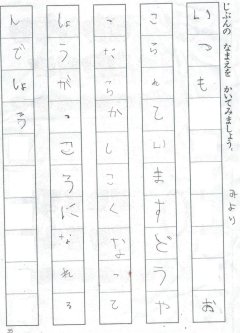 じぶんの なまえを かいてみましょう。
みより
いつも お
こられていますどうや
ったらかしこくなって
しょうがっころになれる
んでしょう
35